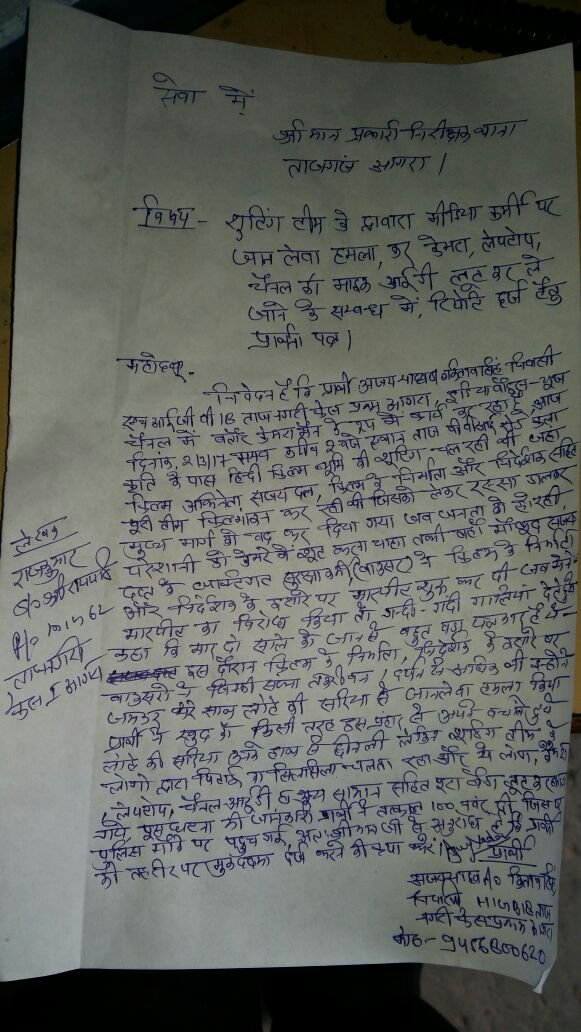 सेवा में
श्री मान प्रभारी निरीक्षक थाना
ताजगंज आगरा।
विषय - शूटिंग टीम के द्वारा मीडिया कर्मी पर
जान लेवा हमला, कर कैमरा, लेपटोप,
चैनल की माइक आईडी लूट कर ले
जाने के सम्बन्ध में, रिपोर्ट दर्ज हेतु
प्रार्थना पत्र।
महोदय,
निवेदन है कि प्रार्थी अजय निवासी
ताज नगरी फेज आगरा, इंडिया
चैनल में बतौर कैमरा मैन के रूप में कार्य कर रहा है आज
दिनांक, 2/3/17 समय करीब 2 बजे स्थान ताज
के पास हिन्दी फिल्म भूमि की शूटिंग चल रही थी जहां
फिल्म अभिनेता, संजय दत्त, फिल्म के निर्माता और निर्देशक सहित
पूरी टीम फिल्मांकन कर रही थी जिसको लेकर रस्सा डालकर
मुख्य मार्ग को बंद कर दिया गया जब जनता को हो रही
परेशानी को कैमरे में शूट करना चाहा तभी वहां मौजूद संजय
दत्त के व्यक्तिगत सुरक्षाकर्मी (बाउंसर) ने फिल्म के निर्माता
और निर्देशक के इशारे पर मारपीट शुरू कर दी जब मैंने
मारपीट का विरोध किया तो गन्दी-गन्दी गालियां देते हुये
कहा कि मार दो साले को जान से बहुत बड़ा पत्रकार है
इस दौरान फिल्म के निर्माता, निर्देशक के इशारे पर
बाउंसरों ने जिनकी संख्या तकरीबन, दर्जन से अधिक थी इन्होंने
जमकर मेरे साथ लोहे की सरिया से जानलेवा हमला किया
प्रार्थी ने खुद को किसी तरह इस प्रहार से अपने बचाते हुये
लोहे की सरिया उनके हाथ से छीनली लेकिन शूटिंग टीम के
लोगों द्वारा पिटाई का सिलसिला चलता रहा और ये लोग, कैमरा
, लेपटोप, चैनल आईडी व अन्य सामान सहित बैग लूट कर
गये, इस घटना की जानकारी प्रार्थी ने तत्काल 100 नंबर दी जिस पर
पुलिस मौके पर पहुच गई, अतः श्री मान जी से अनुरोध है कि प्रार्थी
की तहरीर पर मुकददमा दर्ज करने की कृपा करें।
प्रार्थी
अजय
ताज
नगरी फेस प्रथम आगरा
मो०-
लेखक
राजकुमार
ताजनगरी
फेस I आगरा